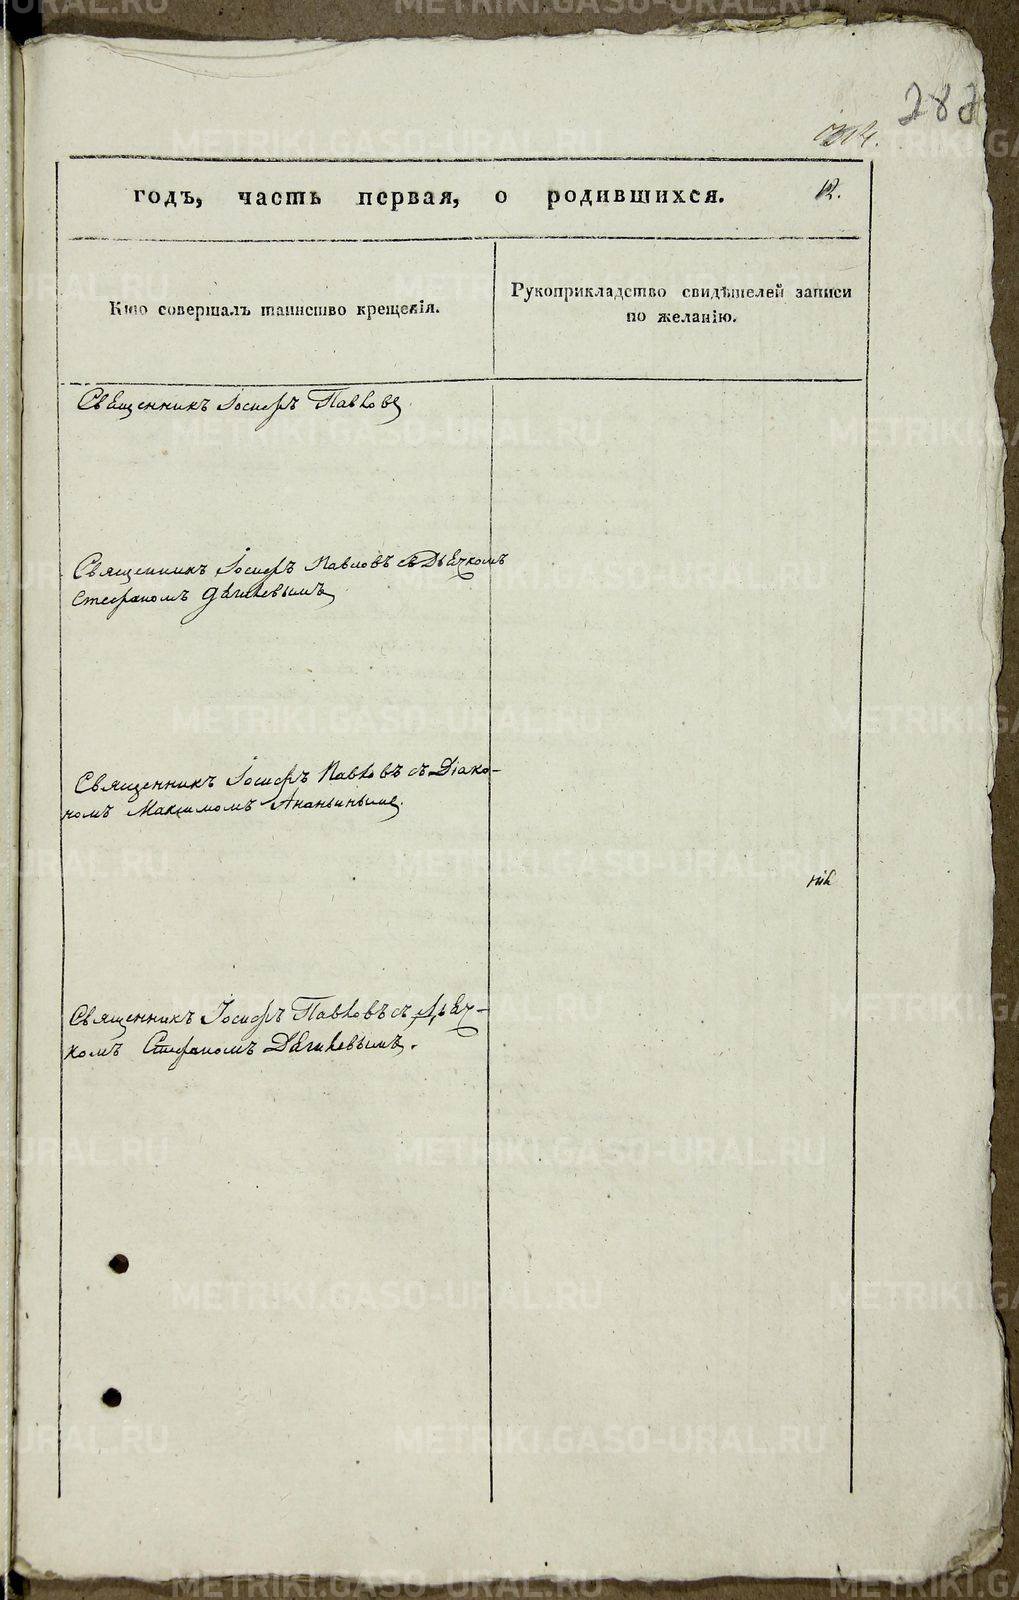 282
годъ, часть первая, о родившихся.
12.
Кто совершалъ таинство крещенія.
Рукоприкладство свидѣтелей записи
по желанію.
Священникъ Іосифъ Павловъ
Священникъ Іосифъ Павловъ съ Дьячкомъ
Стефаномъ
Священникъ Іосифъ Павловъ съ Діако-
номъ Максимомъ Ананьинымъ.
Священникъ Іосифъ Павловъ съ Дьяч-
комъ Стефаномъ
METRIKI.GASO-URAL.RU